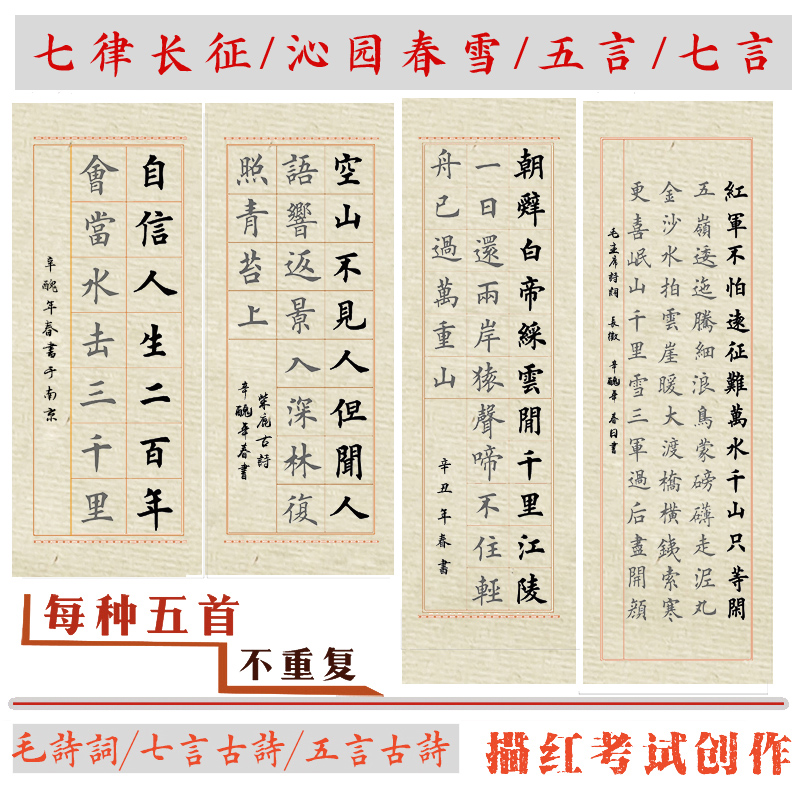 七律长征/沁园春雪/五言/七言
自信人生二百年
會當水击三千里
辛醜年春書于南京
空山不見人但聞人
語響返景入深林復
照青苔上
柴鹿古詩
辛醜年春書
朝辤白帝綵雲間千里江陵
一日還兩岸猿聲啼不住輕
舟已過萬重山
辛丑年春書
紅軍不怕遠征難萬水千山只等閑
五嶺逶迤騰細浪烏蒙磅礴走泥丸
金沙水拍雲崖暖大渡橋橫鐵索寒
更喜岷山千里雪三軍過后盡開顏
毛主席詩詞 長徵 辛醜年 春日書
每种五首
不重复
毛詩詞/七言古詩/五言古詩
描红考试创作